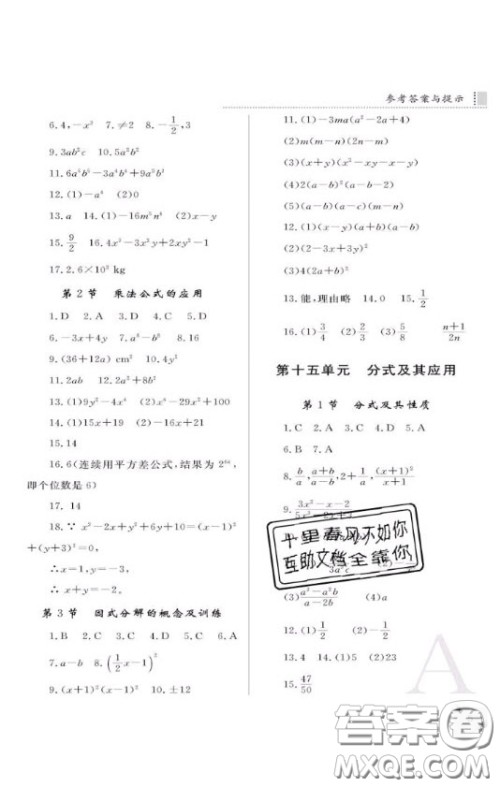 参考答案与提示
6.4,-x³ 7.≠2 8.-1/2,3
9.3ab²c 10.5a²b²
11.6a⁵b⁵-3a⁴b⁶+9a⁵b⁴
12.(1)-a⁴ (2)0
13.a 14.(1)-16m⁵n⁴ (2)x-y
15.9/2 16.4x³-3x²y+2xy²-1
17.2.6×10⁹ kg
第2节 乘法公式的应用
1.D 2.A 3.D 4.A 5.D
6.-3x+4y 7.-a²-b² 8.16
9.(36+12a) cm² 10.4y²
11.2ab 12.2a²+8b²
13.(1)9y²-4x⁶ (2)29-10x-4x²
14.(1)2x+19 (2)-15x+21
15.14
16.6(连续用平方差公式,结果为2⁶⁴,
即个位数是6)
17.14
18.∵x²-2x+y²+6y+10=(x-1)²
+(y+3)²=0,
∴x=1,y=-3.
∴x+y=-2.
第3节 因式分解的概念及训练
1.B 2.C 3.C 4.D 5.C 6.A
7.a-b 8.(1/2x-1)²
9.(x+1)²(x-1)² 10.±12
11.(1)-3ma(a²-2a+4)
(2)m(m-n)(2m-n)
(3)(x+y)(x²-xy-x-y)
(4)2(a²-b²)(a-b-2)
(5)(a-b)(a-c)(m-n)
12.(1)(x-y)(a+b)(a-b)
(2)(-2x+3y)²
(3)4(2a+b)²
13.能,理由略 14.0 15.1/2
16.(1)3/4 (2)2/3 (3)5/8 (n+1)/2n
第十五单元 分式及其应用
第1节 分式及其性质
1.C 2.A 3.C 4.A 5.D
6.B 7.C
8.b/a,(a+b)/(a-b),2+1/a,(x+1)⁵/(x+1)⁵
9.(3x²-x-2)
十里春风不如你
互助文档全靠你
3a²c
(3)(a²+b²)/(a-2b) (4)a
12.(1)5/3 (2)
13.4 14.(1)5 (2)23
15.47/50
A
答案卷
MXQE.COM